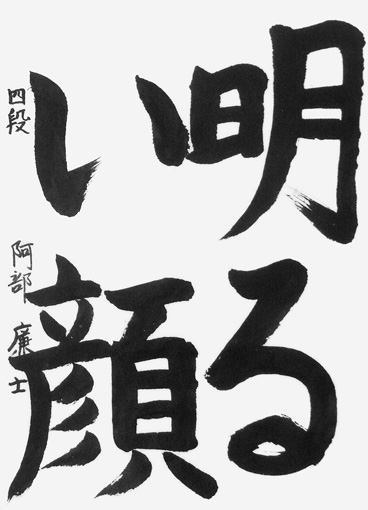 明る
い顔
四段 阿部 廉士